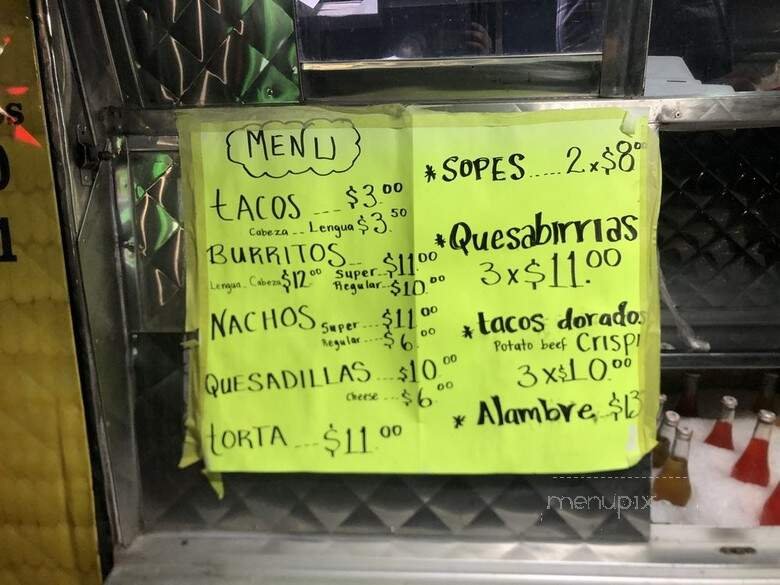 MENU
TACOS ---- $3.00
Cabeza -- Lengua $3.50
BURRITOS -- $11.00
Lengua Cabeza $12.00 Super -- $11.00
Regular -- $10.00
NACHOS Super --- $11.00
Regular ---- $6.00
QUESADILLAS --- $10.00
Cheese --- $6.00
TORTA --- $11.00
* SOPES..... 2x$8.00
* Quesabirrias
3x$11.00
* tacos dorados
Potato beef CRISPI
3x$10.00
* Alambre $13
menupix